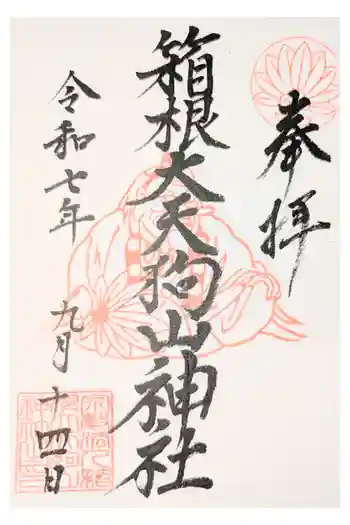 奉拝
箱根大天狗山神社
令和七年
九月十四日